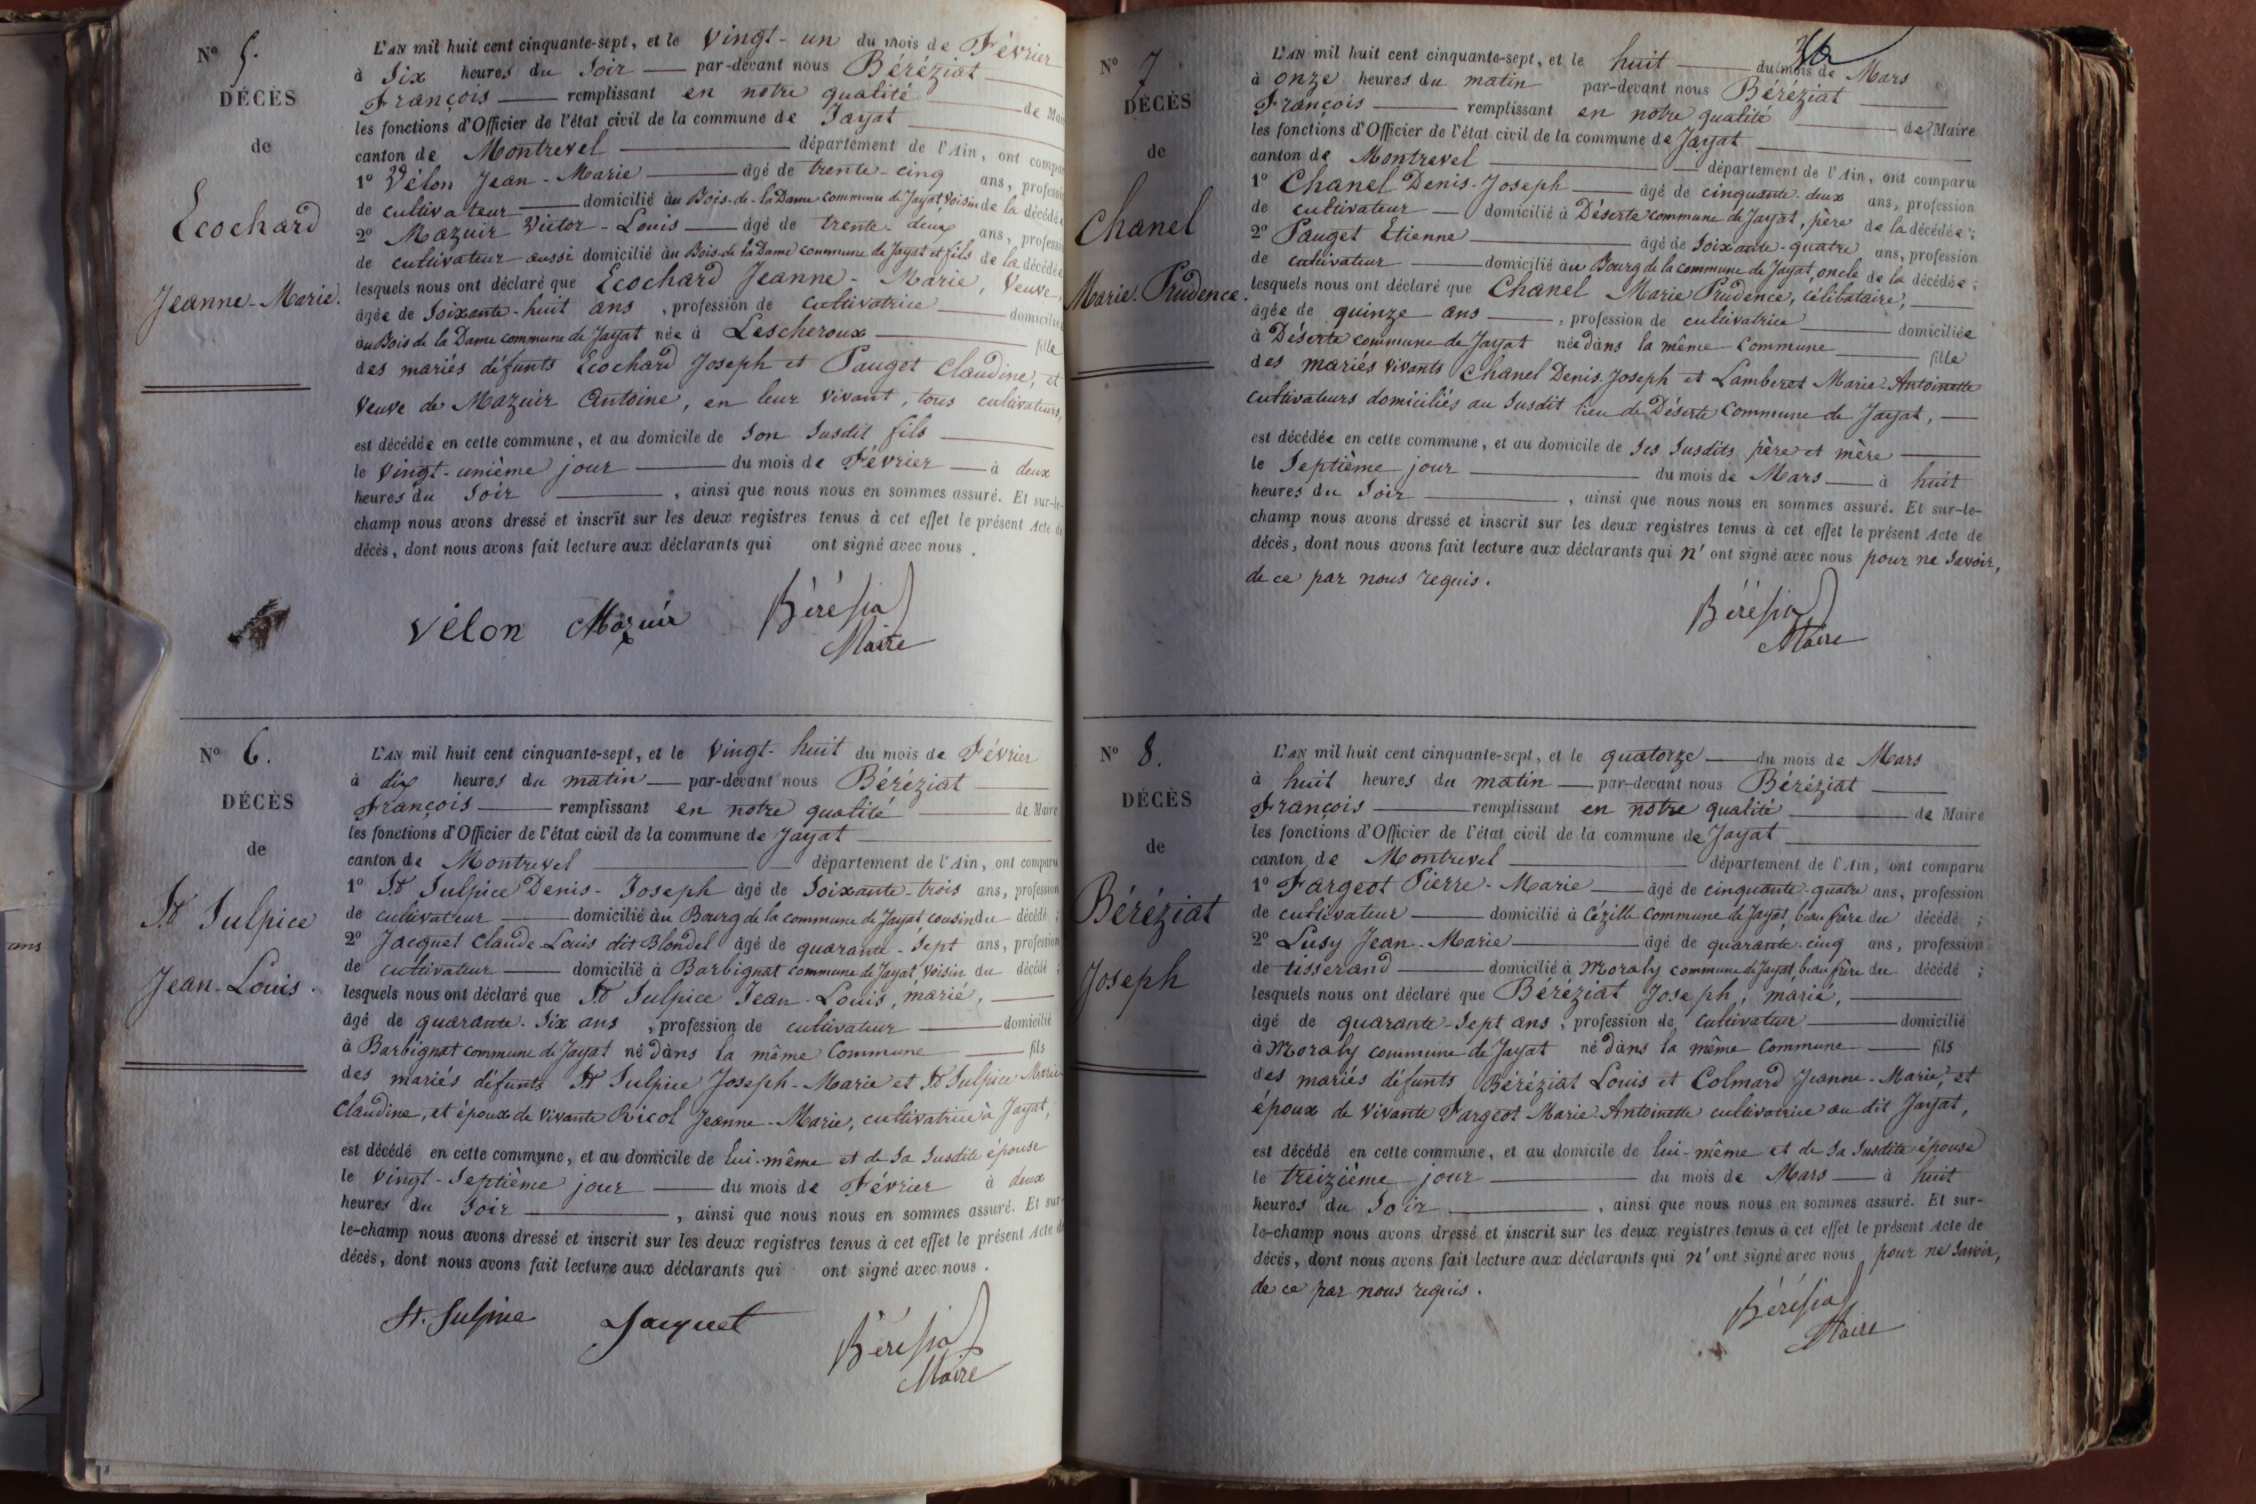 N° 5.
DÉCÈS
de
Ecochard
Jeanne-Marie.
L'AN mil huit cent cinquante-sept, et le Vingt-un du mois de Février
à Six heures du Soir par-devant nous Béréziat
François remplissant en notre qualité de Mai
les fonctions d'Officier de l'état civil de la commune de Jayat
canton de Montrevel département de l'Ain, ont compar
1° Vélon Jean-Marie âgé de trente-cinq ans, profession
de cultivateur domicilié au Bois-de-la Dame commune de Jayat Voisin de la décédée
2° Mazuir Victor-Louis âgé de trente-deux ans, profession
de cultivateur aussi domicilié au Bois-de la Dame commune de Jayat et fils de la décédée
lesquels nous ont déclaré que Ecochard Jeanne-Marie, Veuve
âgée de Soixante-huit ans, profession de cultivatrice domiciliée
au Bois de la Dame commune de Jayat née à Lescheroux fille
des mariés défunts Ecochard Joseph et Pauget Claudine, et
Veuve de Mazuir Antoine, en leur Vivant, tous cultivateurs,
est décédée en cette commune, et au domicile de Son Susdit fils
le Vingt-unième jour du mois de Février à deux
heures du Soir, ainsi que nous nous en sommes assuré. Et sur-le-
champ nous avons dressé et inscrit sur les deux registres tenus à cet effet le présent Acte de
décès, dont nous avons fait lecture aux déclarants qui ont signé avec nous.
Vélon Mazuir Bérésia
Maire
N° 6.
DÉCÈS
de
St Sulpice
Jean-Louis.
L'AN mil huit cent cinquante-sept, et le Vingt-huit du mois de Février
à dix heures du matin par-devant nous Béréziat
François remplissant en notre qualité de Maire
les fonctions d'Officier de l'état civil de la commune de Jayat
canton de Montrevel département de l'Ain, ont comparu
1° St Sulpice Denis-Joseph âgé de Soixante-trois ans, profession
de cultivateur domicilié au Bourg de la commune de Jayat cousin du décédé;
2° Jacquet Claude-Louis dit Blondel âgé de quarante-Sept ans, profession
de cultivateur domicilié à Barbignat commune de Jayat Voisin du décédé;
lesquels nous ont déclaré que St Sulpice Jean-Louis, marié,
âgé de quarante-Six ans, profession de cultivateur domicilié
à Barbignat commune de Jayat né dans la même Commune fils
des mariés défunts St Sulpice Joseph-Marie et St Sulpice Marie
Claudine, et époux de Vivante Ricol Jeanne-Marie, cultivatrice à Jayat,
est décédé en cette commune, et au domicile de lui-même et de Sa Susdite épouse
le Vingt-Septième jour du mois de Février à deux
heures du Soir, ainsi que nous nous en sommes assuré. Et sur
le-champ nous avons dressé et inscrit sur les deux registres tenus à cet effet le présent Acte de
décès, dont nous avons fait lecture aux déclarants qui ont signé avec nous.
St. Sulpice Jacquet Bérésia
Maire
N° 7
DÉCÈS
de
Chanel
Marie Prudence.
L'AN mil huit cent cinquante-sept, et le huit du mois de Mars
à onze heures du matin par-devant nous Béréziat
François remplissant en notre qualité de Maire
les fonctions d'Officier de l'état civil de la commune de Jayat
canton de Montrevel département de l'Ain, ont comparu
1° Chanel Denis-Joseph âgé de cinquante-deux ans, profession
de cultivateur domicilié à Déserte commune de Jayat, père de la décédée;
2° Pauget Etienne âgé de Soixante-quatre ans, profession
de cultivateur domicilié au Bourg de la commune de Jayat, oncle de la décédée;
lesquels nous ont déclaré que Chanel Marie Prudence, célibataire,
âgée de quinze ans, profession de cultivatrice domiciliée
à Déserte commune de Jayat née dans la même Commune fille
des mariés vivants Chanel Denis Joseph et Lamberet Marie-Antoinette
cultivateurs domiciliés au Susdit lieu de Déserte Commune de Jayat,
est décédée en cette commune, et au domicile de Ses Susdits père et mère
le Septième jour du mois de Mars à huit
heures du Soir, ainsi que nous nous en sommes assuré. Et sur-le-
champ nous avons dressé et inscrit sur les deux registres tenus à cet effet le présent Acte de
décès, dont nous avons fait lecture aux déclarants qui n'ont signé avec nous pour ne Savoir,
de ce par nous requis.
Bérésia
Maire
N° 8.
DÉCÈS
de
Béréziat
Joseph
L'AN mil huit cent cinquante-sept, et le quatorze du mois de Mars
à huit heures du matin par-devant nous Béréziat
François remplissant en notre qualité de Maire
les fonctions d'Officier de l'état civil de la commune de Jayat
canton de Montrevel département de l'Ain, ont comparu
1° Fargeot Pierre-Marie âgé de cinquante-quatre ans, profession
de cultivateur domicilié à Cézille commune de Jayat, beau frère du décédé;
2° Lusy Jean-Marie âgé de quarante-cinq ans, profession
de tisserand domicilié à Moraly commune de Jayat, beau frère du décédé;
lesquels nous ont déclaré que Béréziat Joseph, marié,
âgé de quarante-Sept ans, profession de Cultivateur domicilié
à Moraly commune de Jayat né dans la même Commune fils
des mariés défunts Béréziat Louis et Colmard Jeanne-Marie, et
époux de Vivante Fargeot Marie-Antoinette cultivatrice au dit Jayat,
est décédé en cette commune, et au domicile de lui-même et de Sa Susdite épouse
le treizième jour du mois de Mars à huit
heures du Soir, ainsi que nous nous en sommes assuré. Et sur-
le-champ nous avons dressé et inscrit sur les deux registres tenus à cet effet le présent Acte de
décès, dont nous avons fait lecture aux déclarants qui n'ont signé avec nous pour ne Savoir,
de ce par nous requis.
Bérésia
Maire
ans